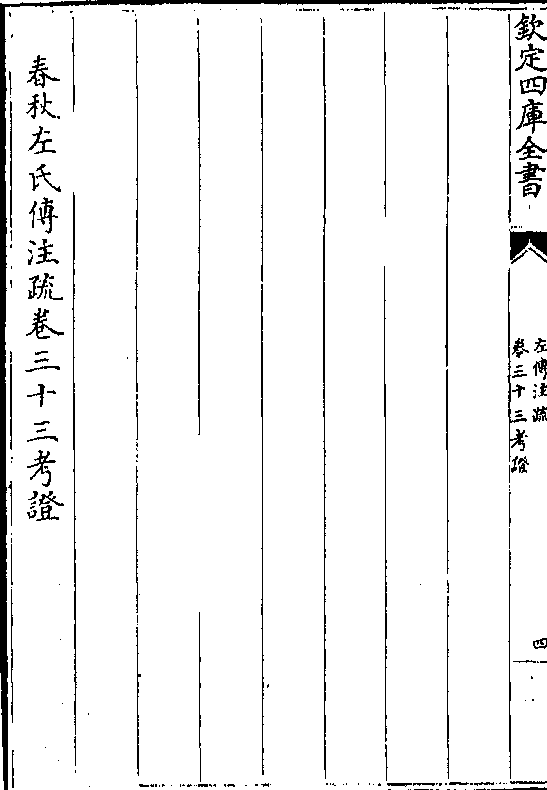 欽定四庫全書
左傳注疏
卷三十三考證
四
春秋左氏傳注疏卷三十三考證